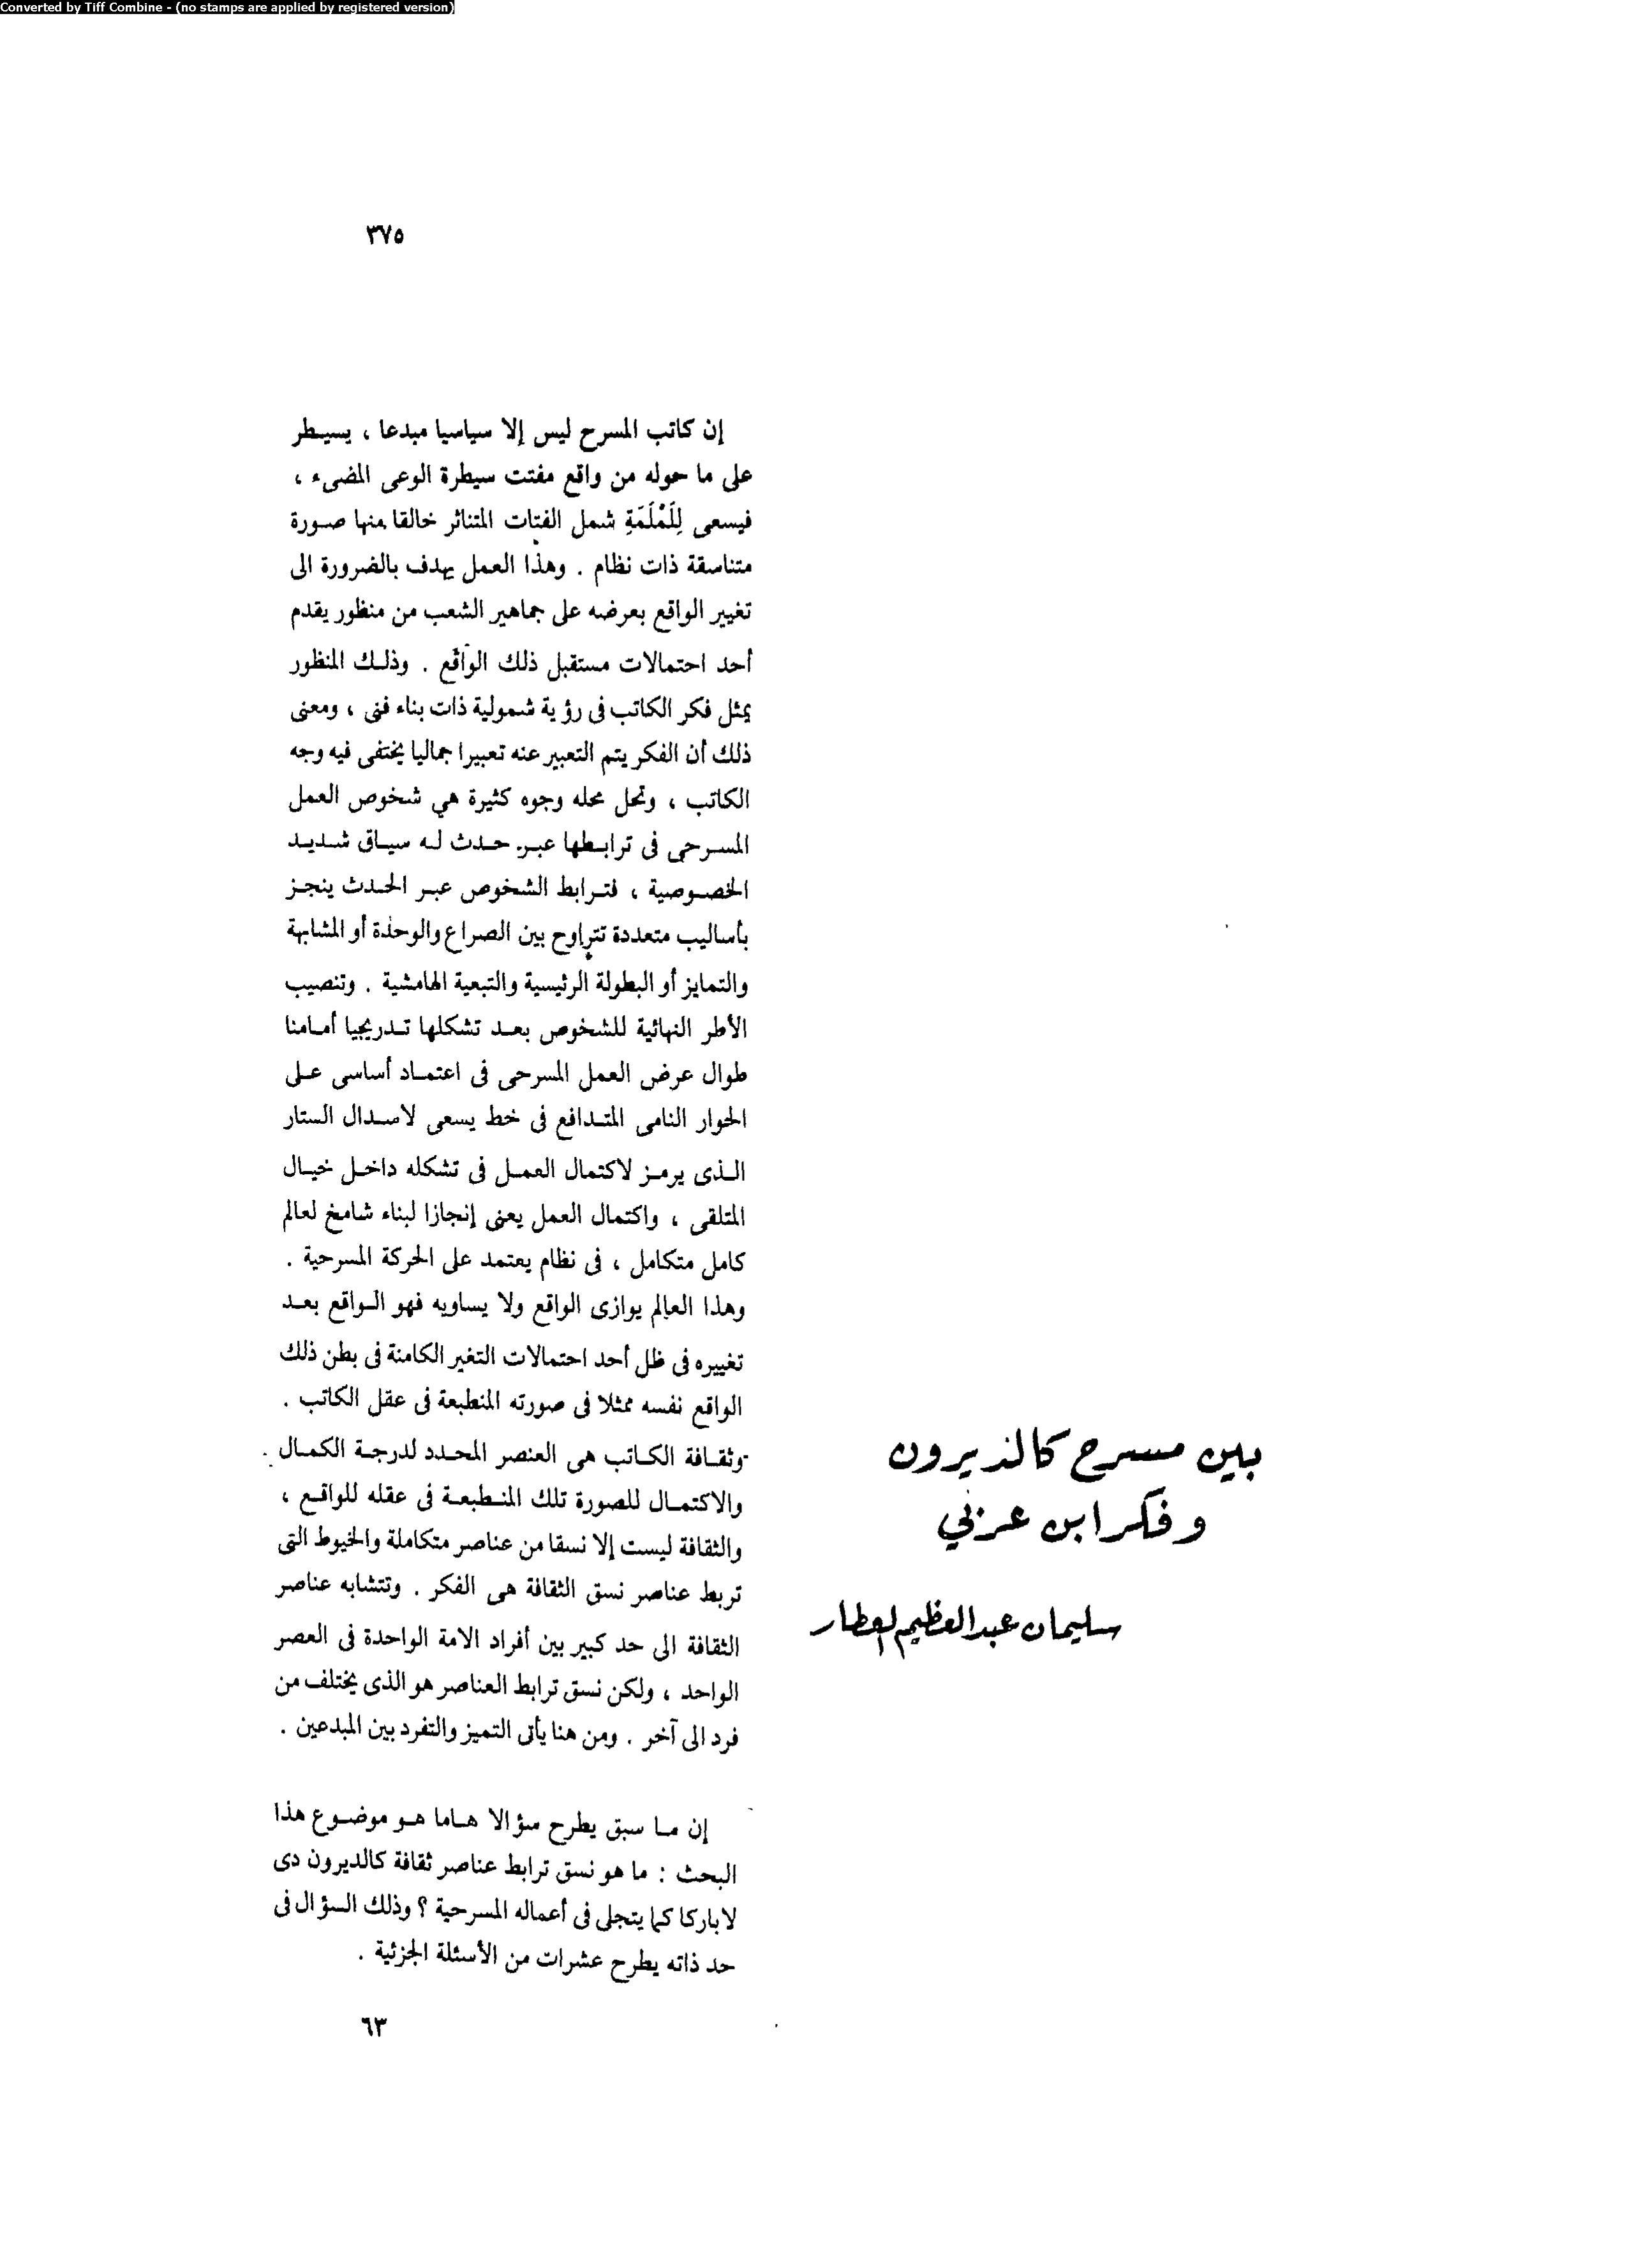 Converted by Tiff Combine - (no stamps are applied by registered version)
٣٧٥
بين مسرح كالديرون
وفكر ابن عربي
سليمان عبد العظيم العطار
إن كاتب المسرح ليس إلا سياسيا مبدعا ، يسيطر
على ما حوله من واقع مفتت سيطرة الوعى المضىء ،
فيسعى لِلَمْلَمَةِ شمل الفتات المتناثر خالقا منها صورة
متناسقة ذات نظام . وهذا العمل يهدف بالضرورة الى
تغيير الواقع بعرضه على جماهير الشعب من منظور يقدم
أحد احتمالات مستقبل ذلك الواقع . وذلك المنظور
يمثل فكر الكاتب فى رؤية شمولية ذات بناء فنى ، ومعنى
ذلك أن الفكر يتم التعبير عنه تعبيرا جماليا يختفى فيه وجه
الكاتب ، وتحل محله وجوه كثيرة هي شخوص العمل
المسرحى فى ترابطها عبر حدث له سياق شديد
الخصوصية ، فترابط الشخوص عبر الحدث ينجز
بأساليب متعددة تتراوح بين الصراع والوحدة أو المشابهة
والتمايز أو البطولة الرئيسية والتبعية الهامشية . وتنصيب
الأطر النهائية للشخوص بعد تشكلها تدريجيا أمامنا
طوال عرض العمل المسرحى فى اعتماد أساسى على
الحوار النامى المتدافع فى خط يسعى لاسدال الستار
الذى يرمز لاكتمال العمل فى تشكله داخل خيال
المتلقى ، واكتمال العمل يعنى إنجازا لبناء شامخ لعالم
كامل متكامل ، فى نظام يعتمد على الحركة المسرحية .
وهذا العالم يوازى الواقع ولا يساويه فهو الواقع بعد
تغييره فى ظل أحد احتمالات التغير الكامنة فى بطن ذلك
الواقع نفسه ممثلا فى صورته المنطبعة فى عقل الكاتب .
وثقافة الكاتب هى العنصر المحدد لدرجة الكمال
والاكتمال للصورة تلك المنطبعة فى عقله للواقع ،
والثقافة ليست إلا نسقا من عناصر متكاملة والخيوط التى
تربط عناصر نسق الثقافة هى الفكر . وتتشابه عناصر
الثقافة الى حد كبير بين أفراد الامة الواحدة فى العصر
الواحد ، ولكن نسق ترابط العناصر هو الذى يختلف من
فرد الى آخر . ومن هنا يأتى التميز والتفرد بين المبدعين .
إن ما سبق يطرح سؤالا هاما هو موضوع هذا
البحث : ما هو نسق ترابط عناصر ثقافة كالديرون دى
لاباركا كما يتجلى فى أعماله المسرحية ؟ وذلك السؤال فى
حد ذاته يطرح عشرات من الأسئلة الجزئية .
٦٣